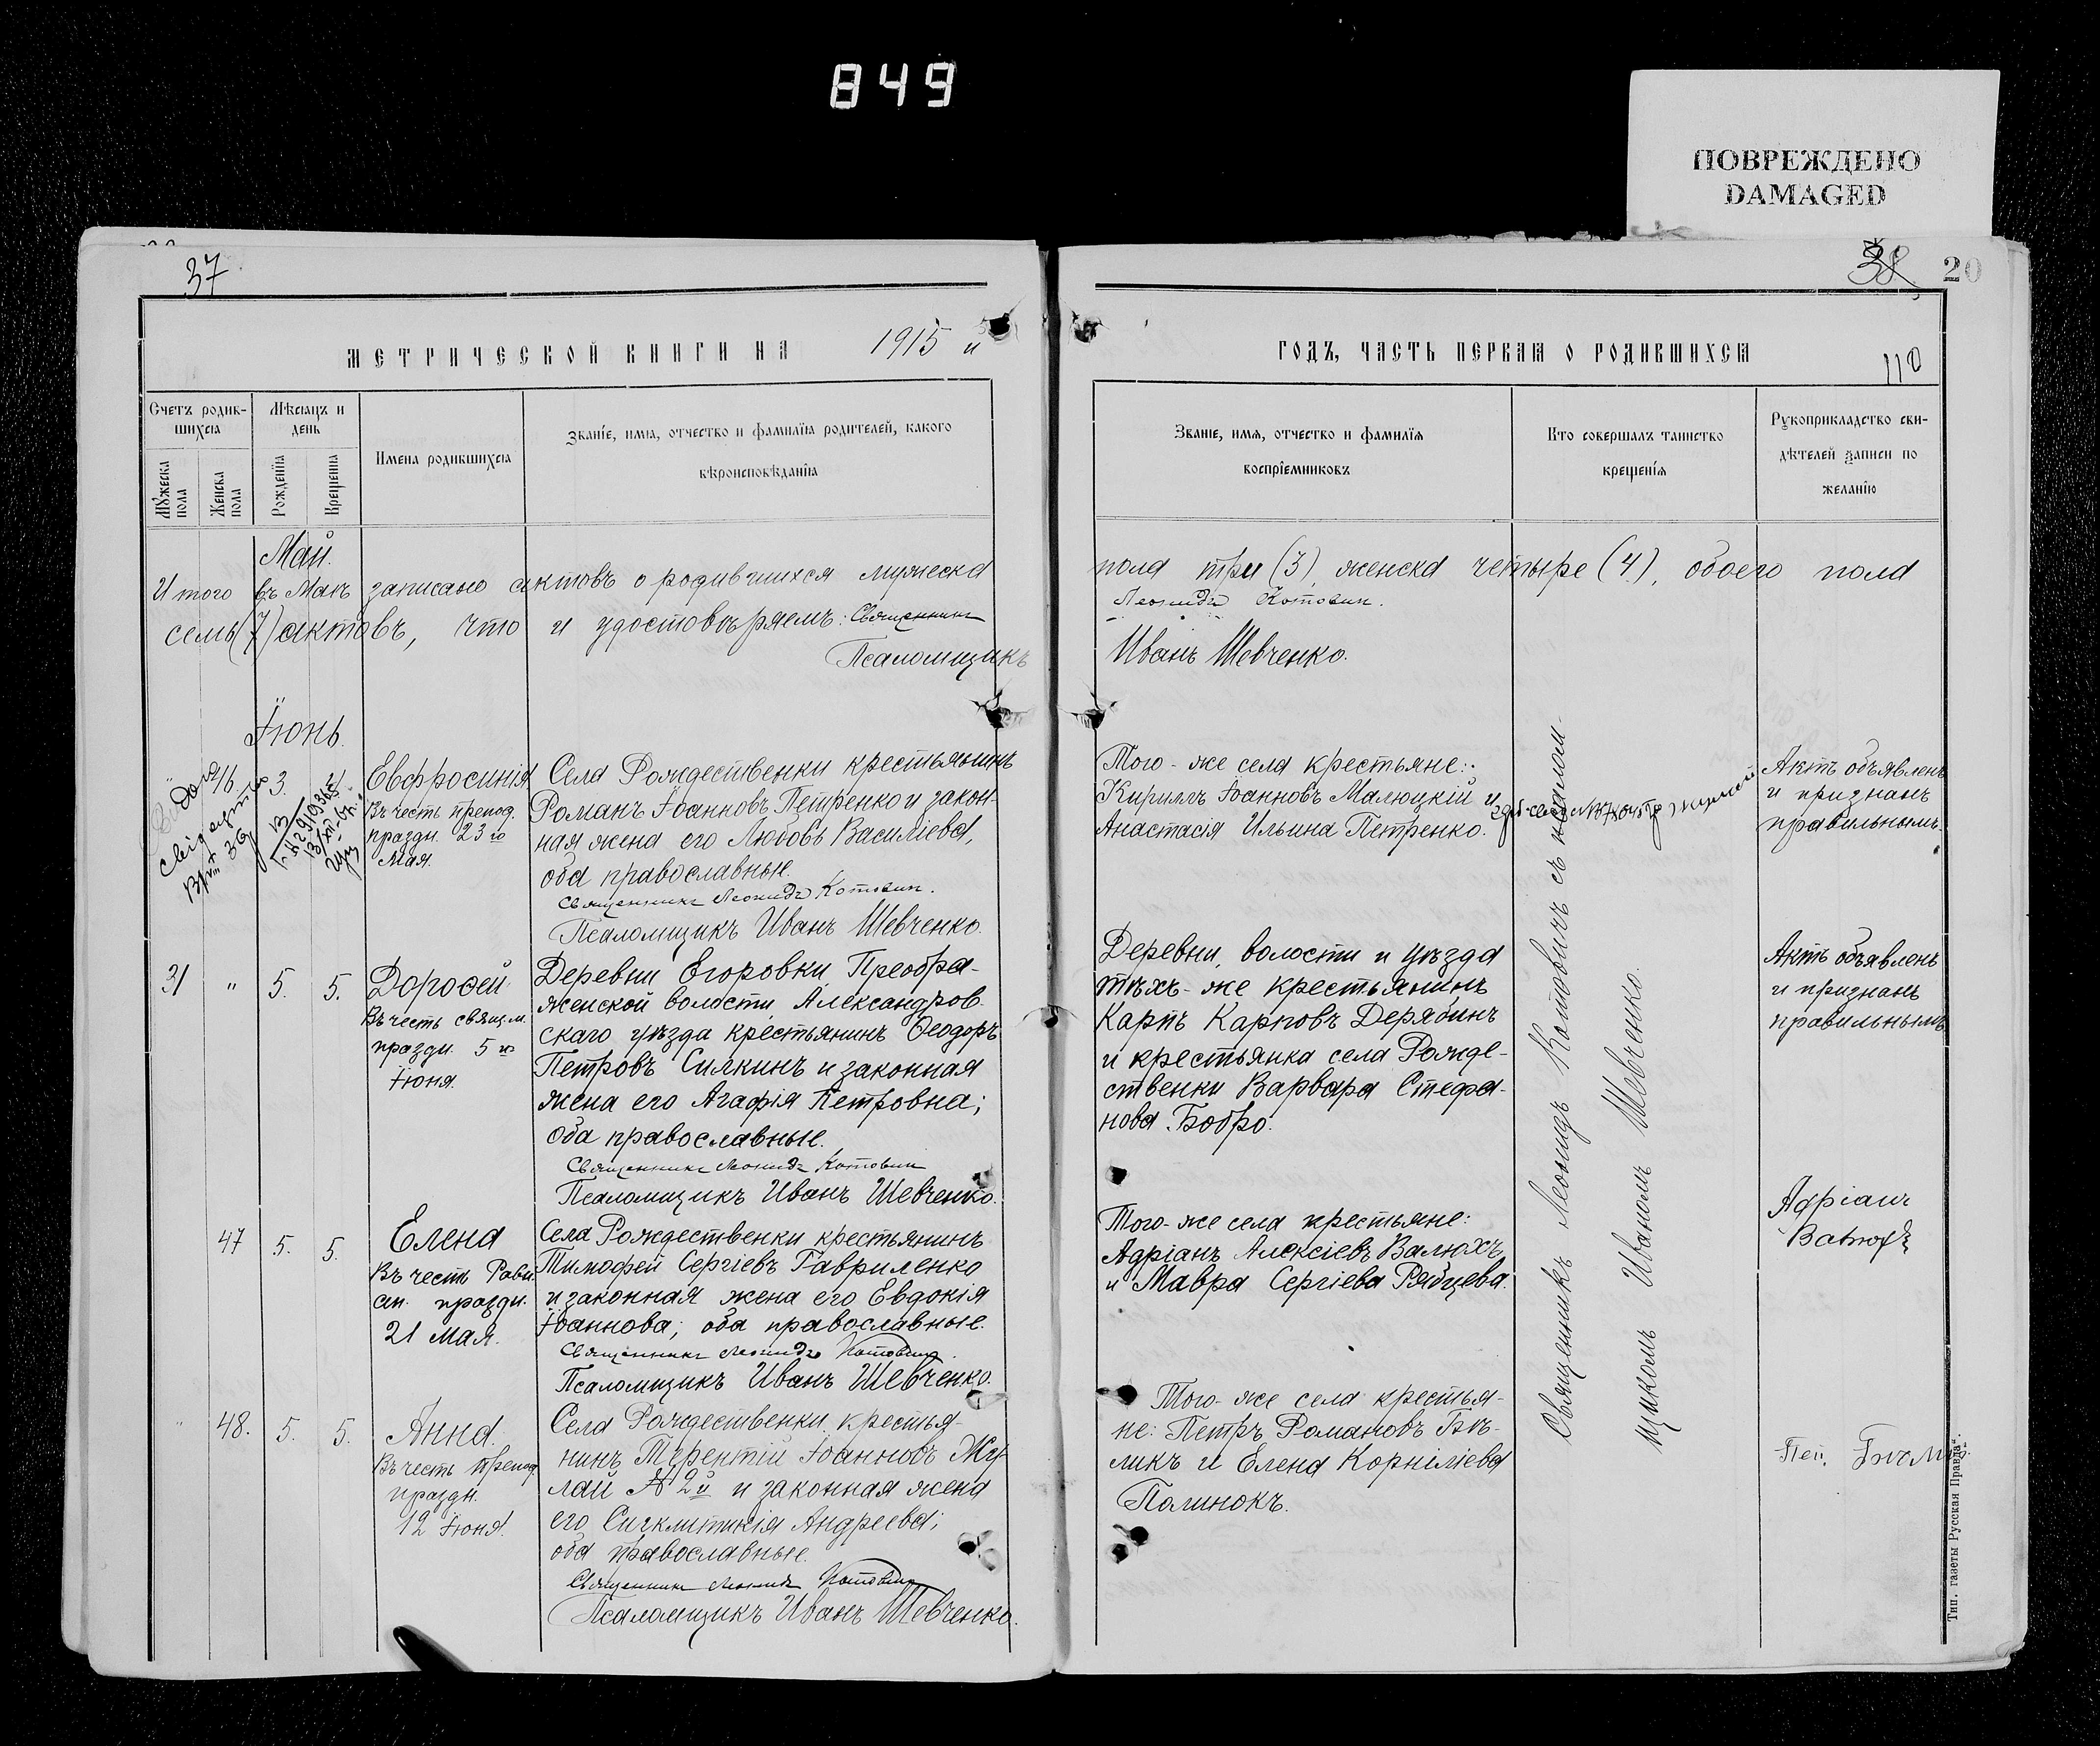 849
ПОВРЕЖДЕНО
DAMAGED
37
38
20
МЕТРИЧЕСКОЙ КНИГИ НА 1915 й
ГОДЪ, ЧАСТЬ ПЕРВАЯ О РОДИВШИХСЯ
110
Счетъ родив-
шихся
Мѣсяцъ и
день
Мужеска
пола
Женска
пола
Рожденія
Крещенія
Имена родившихся
Званіе, имя, отчество и фамилія родителей, какого
вѣроисповѣданія
Званіе, имя, отчество и фамилія
воспріемниковъ
Кто совершалъ таинство
крещенія
Рукоприкладство сви-
дѣтелей записи по
желанію
Май.
Итого въ Маѣ записано актовъ о родившихся мужеска
семь (7) актовъ, что и удостовѣряемъ: Священникъ
Псаломщикъ
пола три (3), женска четыре (4), обоего пола
Леонидъ Котович.
Иванъ Шевченко.
Іюнь.
46
3.
4
Евфросинія
Въ честь препод.
праздн. 23 го
Мая.
Села Рождественки крестьянинъ
Романъ Іоанновъ Петренко и закон-
ная жена его Любовь Василіева,
оба православные.
Священникъ Леонидъ Котович.
Псаломщикъ Иванъ Шевченко.
Того-же села крестьяне:
Кириллъ Іоанновъ Малюцкій и
Анастасія Ильина Петренко.
Актъ объявленъ
и признанъ
правильнымъ.
31
"
5.
5.
Дорофей
Въ честь свящ. м.
праздн. 5 го
Іюня.
Деревни Егоровки, Преобра-
женской волости, Александров-
скаго уѣзда крестьянинъ Ѳеодоръ
Петровъ Силкинъ и законная
жена его Агафія Петровна;
оба православные.
Священникъ Леонидъ Котович
Псаломщикъ Иванъ Шевченко.
Деревни, волости и уѣзда
тѣхъ-же крестьянинъ
Карпъ Карповъ Дерябинъ
и крестьянка села Рожде-
ственки Варвара Стефа-
нова Бобро.
Актъ объявленъ
и признанъ
правильнымъ
47
5.
5.
Елена
Въ честь Равн.
ап. праздн.
21 Мая.
Села Рождественки крестьянинъ
Тимофей Сергіевъ Гавриленко
и законная жена его Евдокія
Іоаннова; оба православные.
Священникъ Леонидъ Котович.
Псаломщикъ Иванъ Шевченко.
Того-же села крестьяне:
Адріанъ Алексіевъ Валюхъ
и Мавра Сергіева Рябцева.
Адріанъ
Валюхъ
48.
5.
5.
Анна.
Въ честь препод.
праздн.
12 Іюня.
Села Рождественки, крестья-
нинъ Терентій Іоанновъ Жу-
лай 2 й и законная жена
его Синклитикія Андреева;
оба православные.
Священникъ Леонидъ Котович
Псаломщикъ Иванъ Шевченко.
Того-же села крестья-
не: Петръ Романовъ Бѣ-
ликъ и Елена Корниліева
Полинокъ.
Священникъ Леонидъ Котовичъ съ псалом-
щикомъ Иваномъ Шевченко.
Тип. газеты „Русская Правда“.